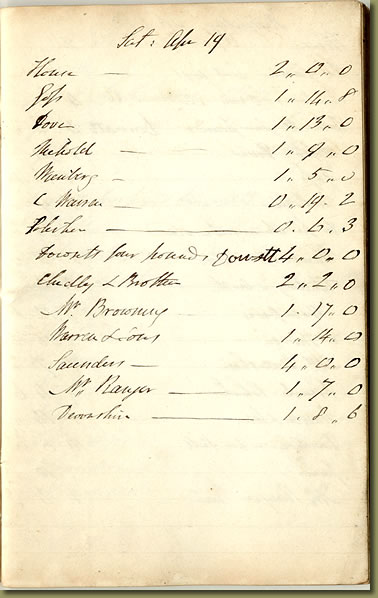 Sat: Apr 19
House — 2 „ 0 „ 0
Goss 1 „ 14 „ 8
Dove 1 „ 13 „ 0
1 „ 9 „ 0
1 „ 5 „ 0
C Warren — 0 „ 19 - 2
— 0 . 6 . 3
four pounds 4 „ 0 „ 0
Chidly & Brother 2 „ 2 „ 0
Mr. Browning 1 - 17 „ 0
Warren & Sons 1 „ 14 „ 0
Saunders — 4 „ 0 „ 0
Mr. Ranger — 1 „ 7 „ 0
Devonshire — 1 . 8 „ 6